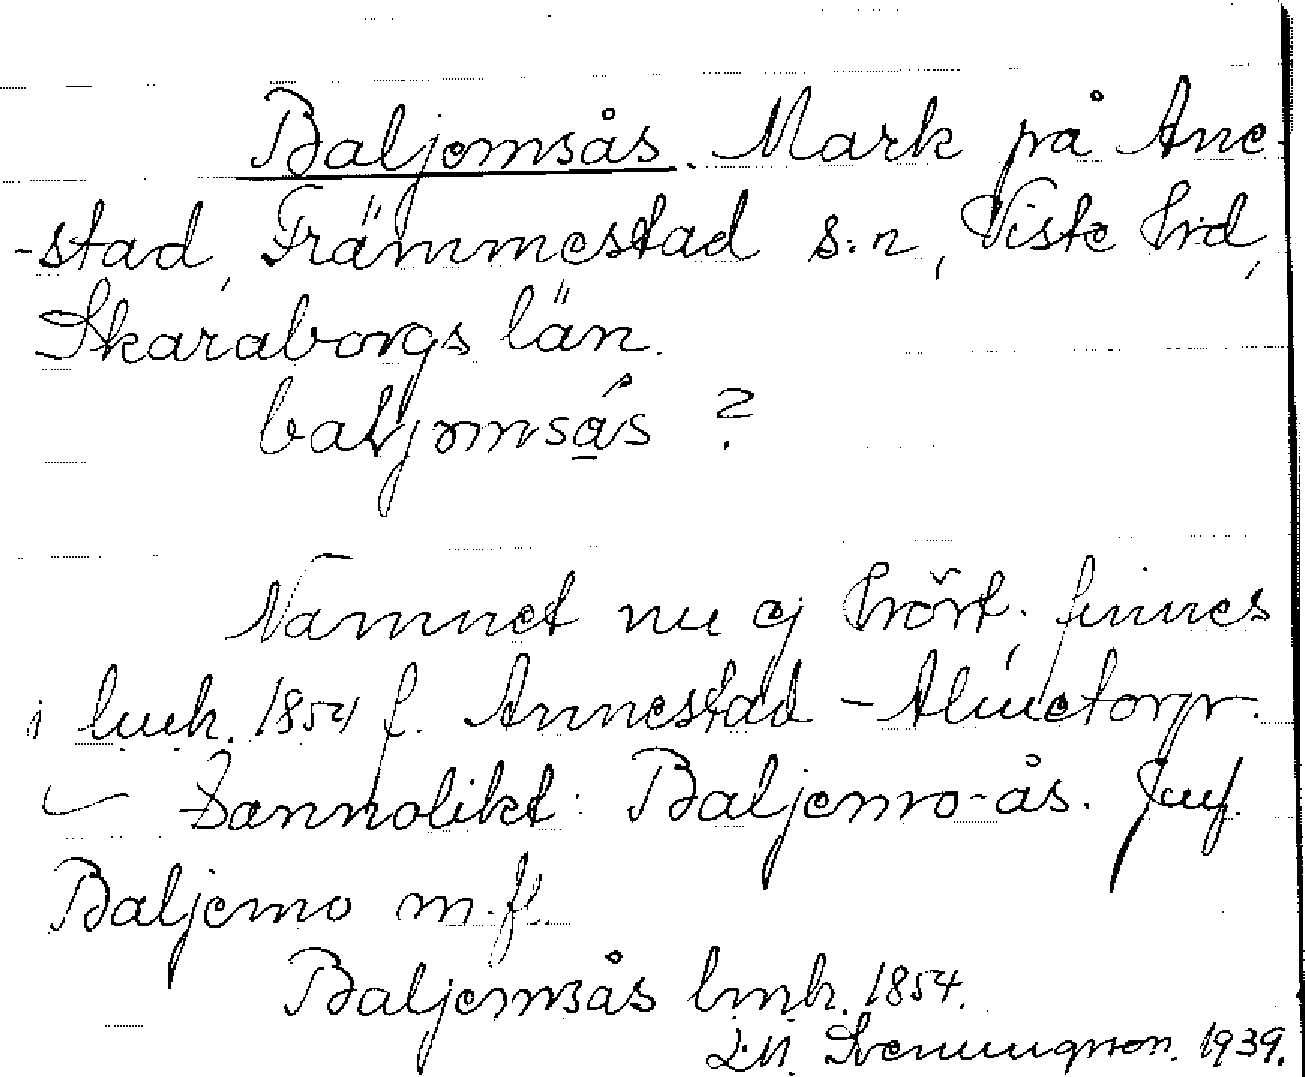 Baljomsås. Mark på Ane-
-stad, Främmestad s:n, Viste hrd,
Skaraborgs län.
baljomsås ?
Namnet nu ej hört, finnes
i lmh. 1854 f. Annestad -
Sannolikt: Baljemo-ås. Juf.
Baljemo m.fl.
Baljemsås lmh. 1854.
Svenungsson. 1939.